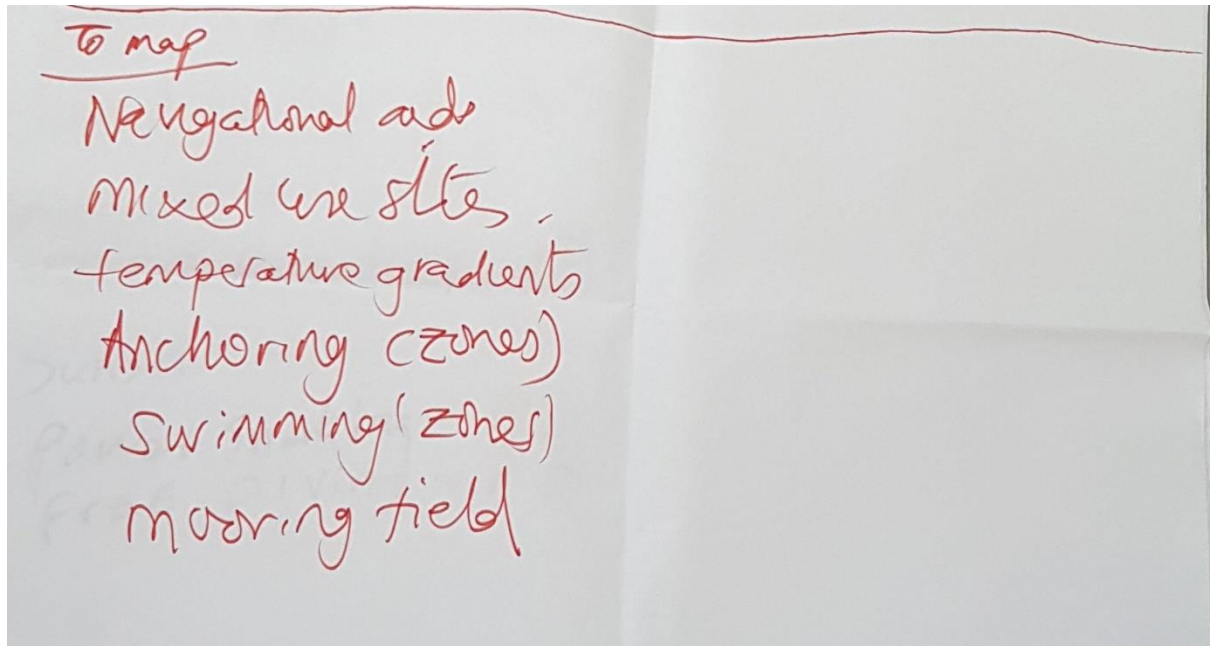 To map
Navigational aids
Mixed use sites.
temperature gradients
Anchoring (zones)
Swimming (zones)
mooring field